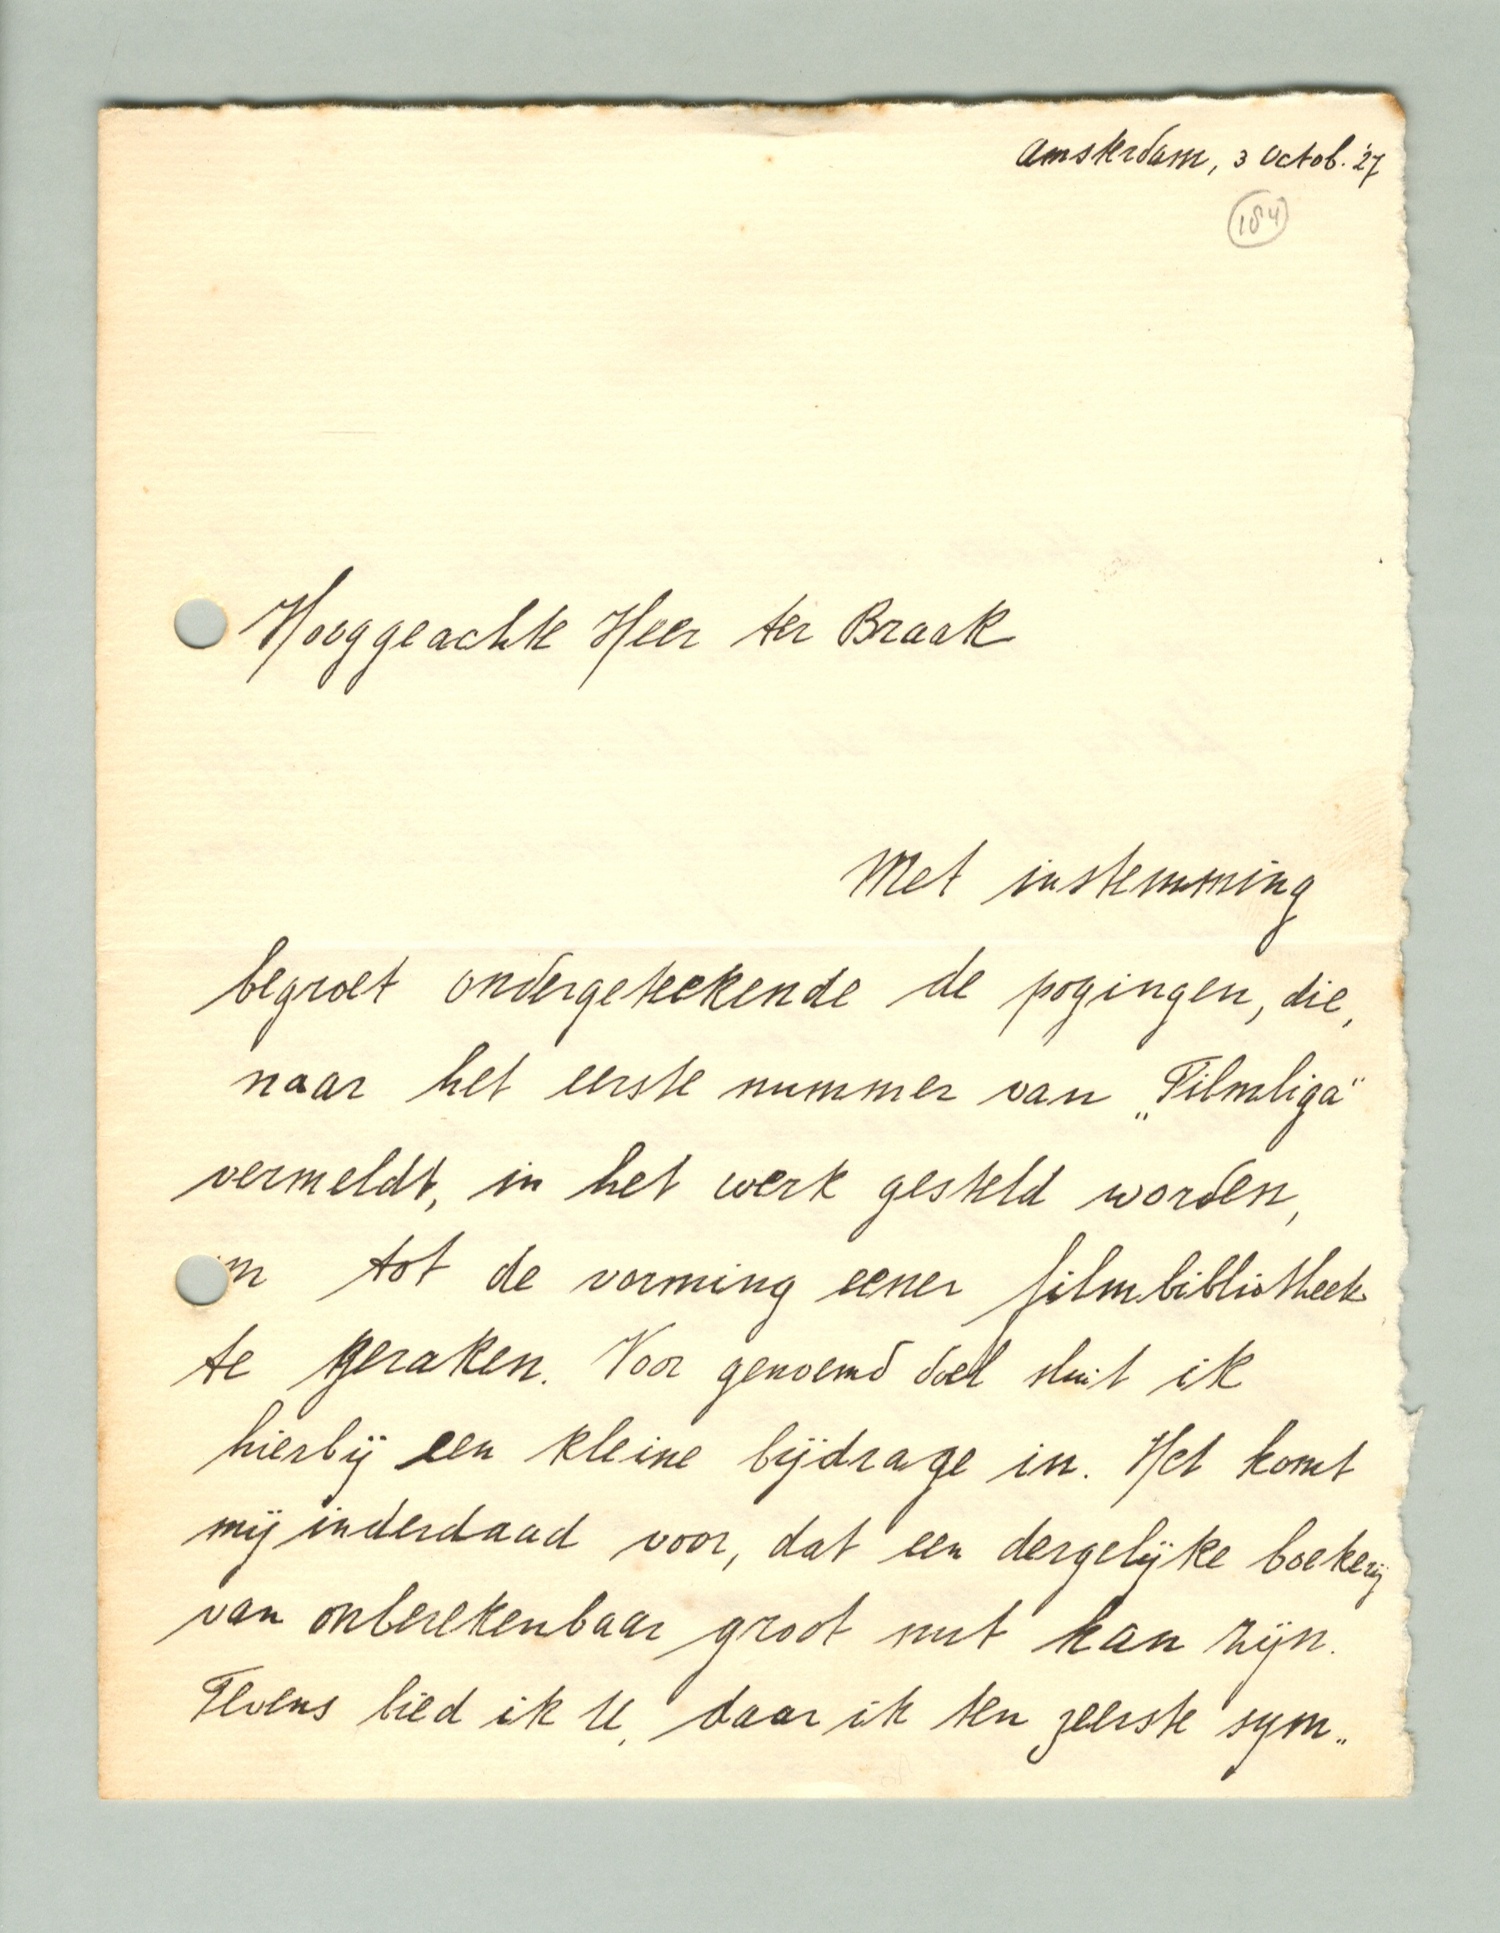 Amsterdam, 3 Octob. '27
184
Hooggeachte Heer ter Braak
Met instemming
begroet ondergeteekende de pogingen, die,
naar het eerste nummer van „Filmliga"
vermeldt, in het werk gesteld worden,
m tot de vorming eener filmbibliotheek
te geraken. Voor genoemd doel sluit ik
hierbij een kleine bijdrage in. Het komt
mij inderdaad voor, dat een dergelijke boekerij
van onberekenbaar groot nut kan zijn.
Tevens bied ik U, daar ik ten zeerste sym„